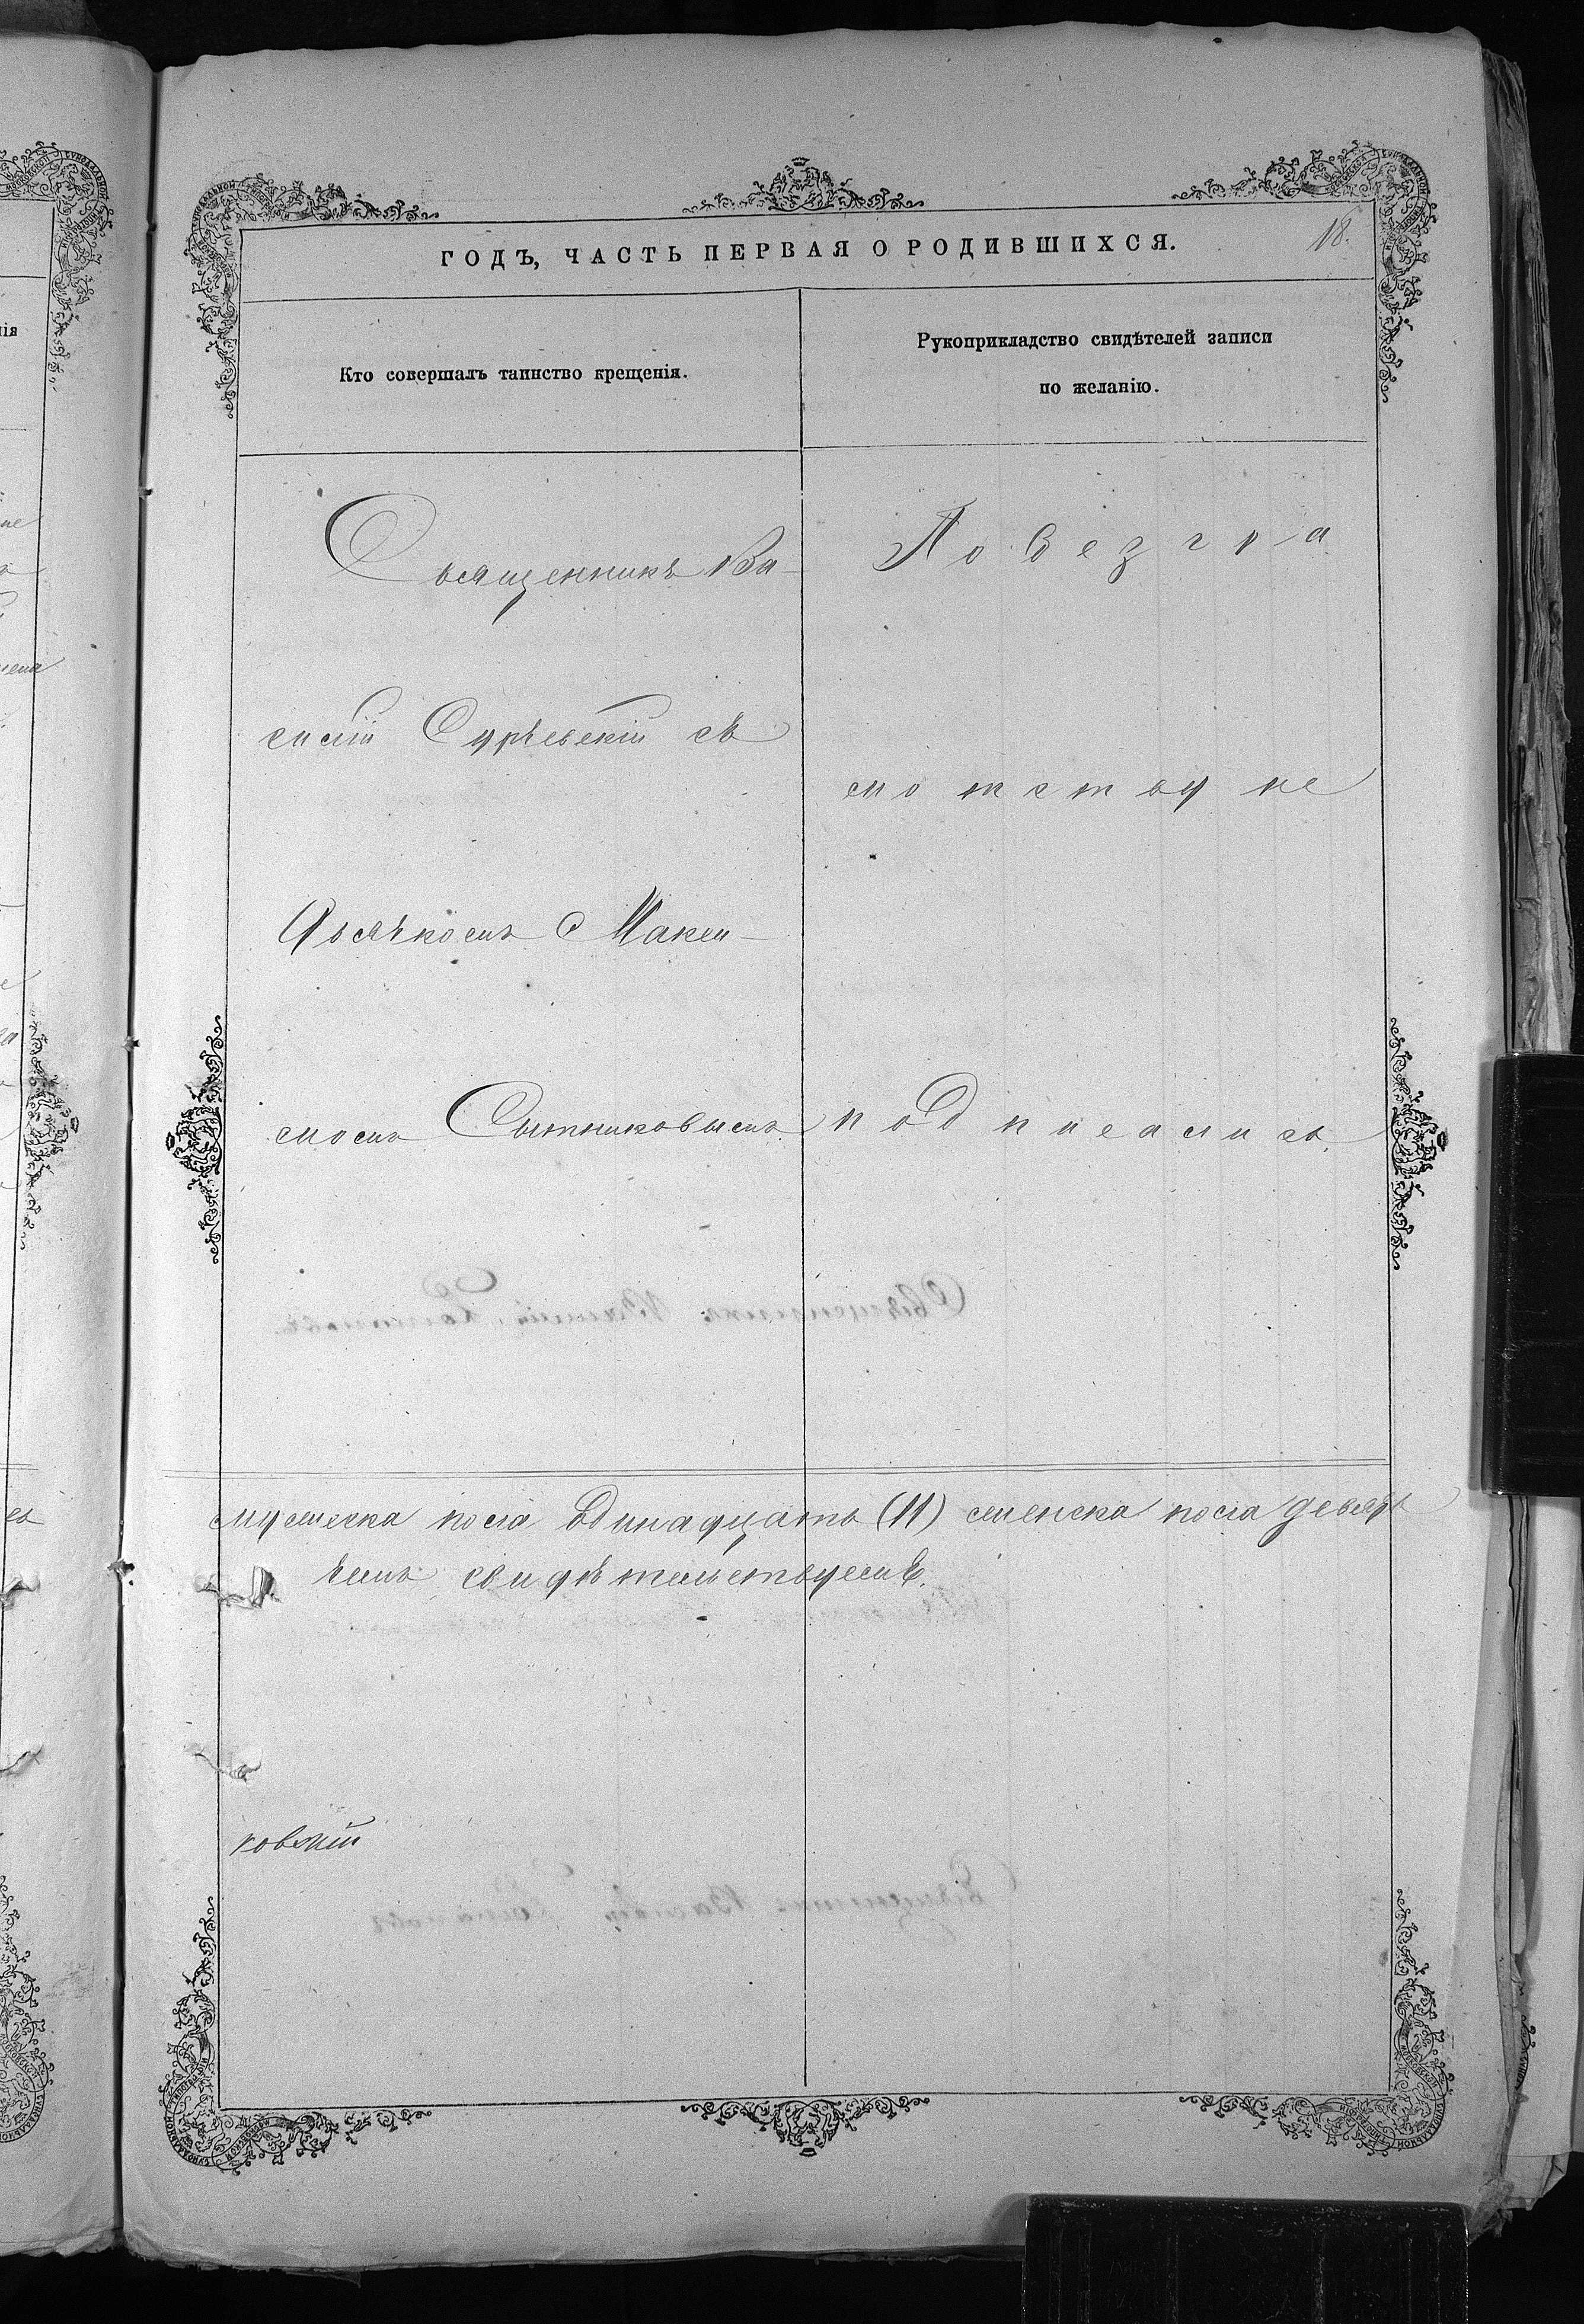 18.
ГОДЪ, ЧАСТЬ ПЕРВАЯ О РОДИВШИХСЯ.
Кто совершалъ таинство крещенія.
Рукоприкладство свидѣтелей записи
по желанію.
Священникъ Ва-
силій Сурѣвскій съ
Псаломщ Макси-
момъ Сытниковымъ
По безгра
мотству не
подписались
мужеска пола Единадцать (11) женска пола девять
емъ свидѣтельствуемъ.
ковскій